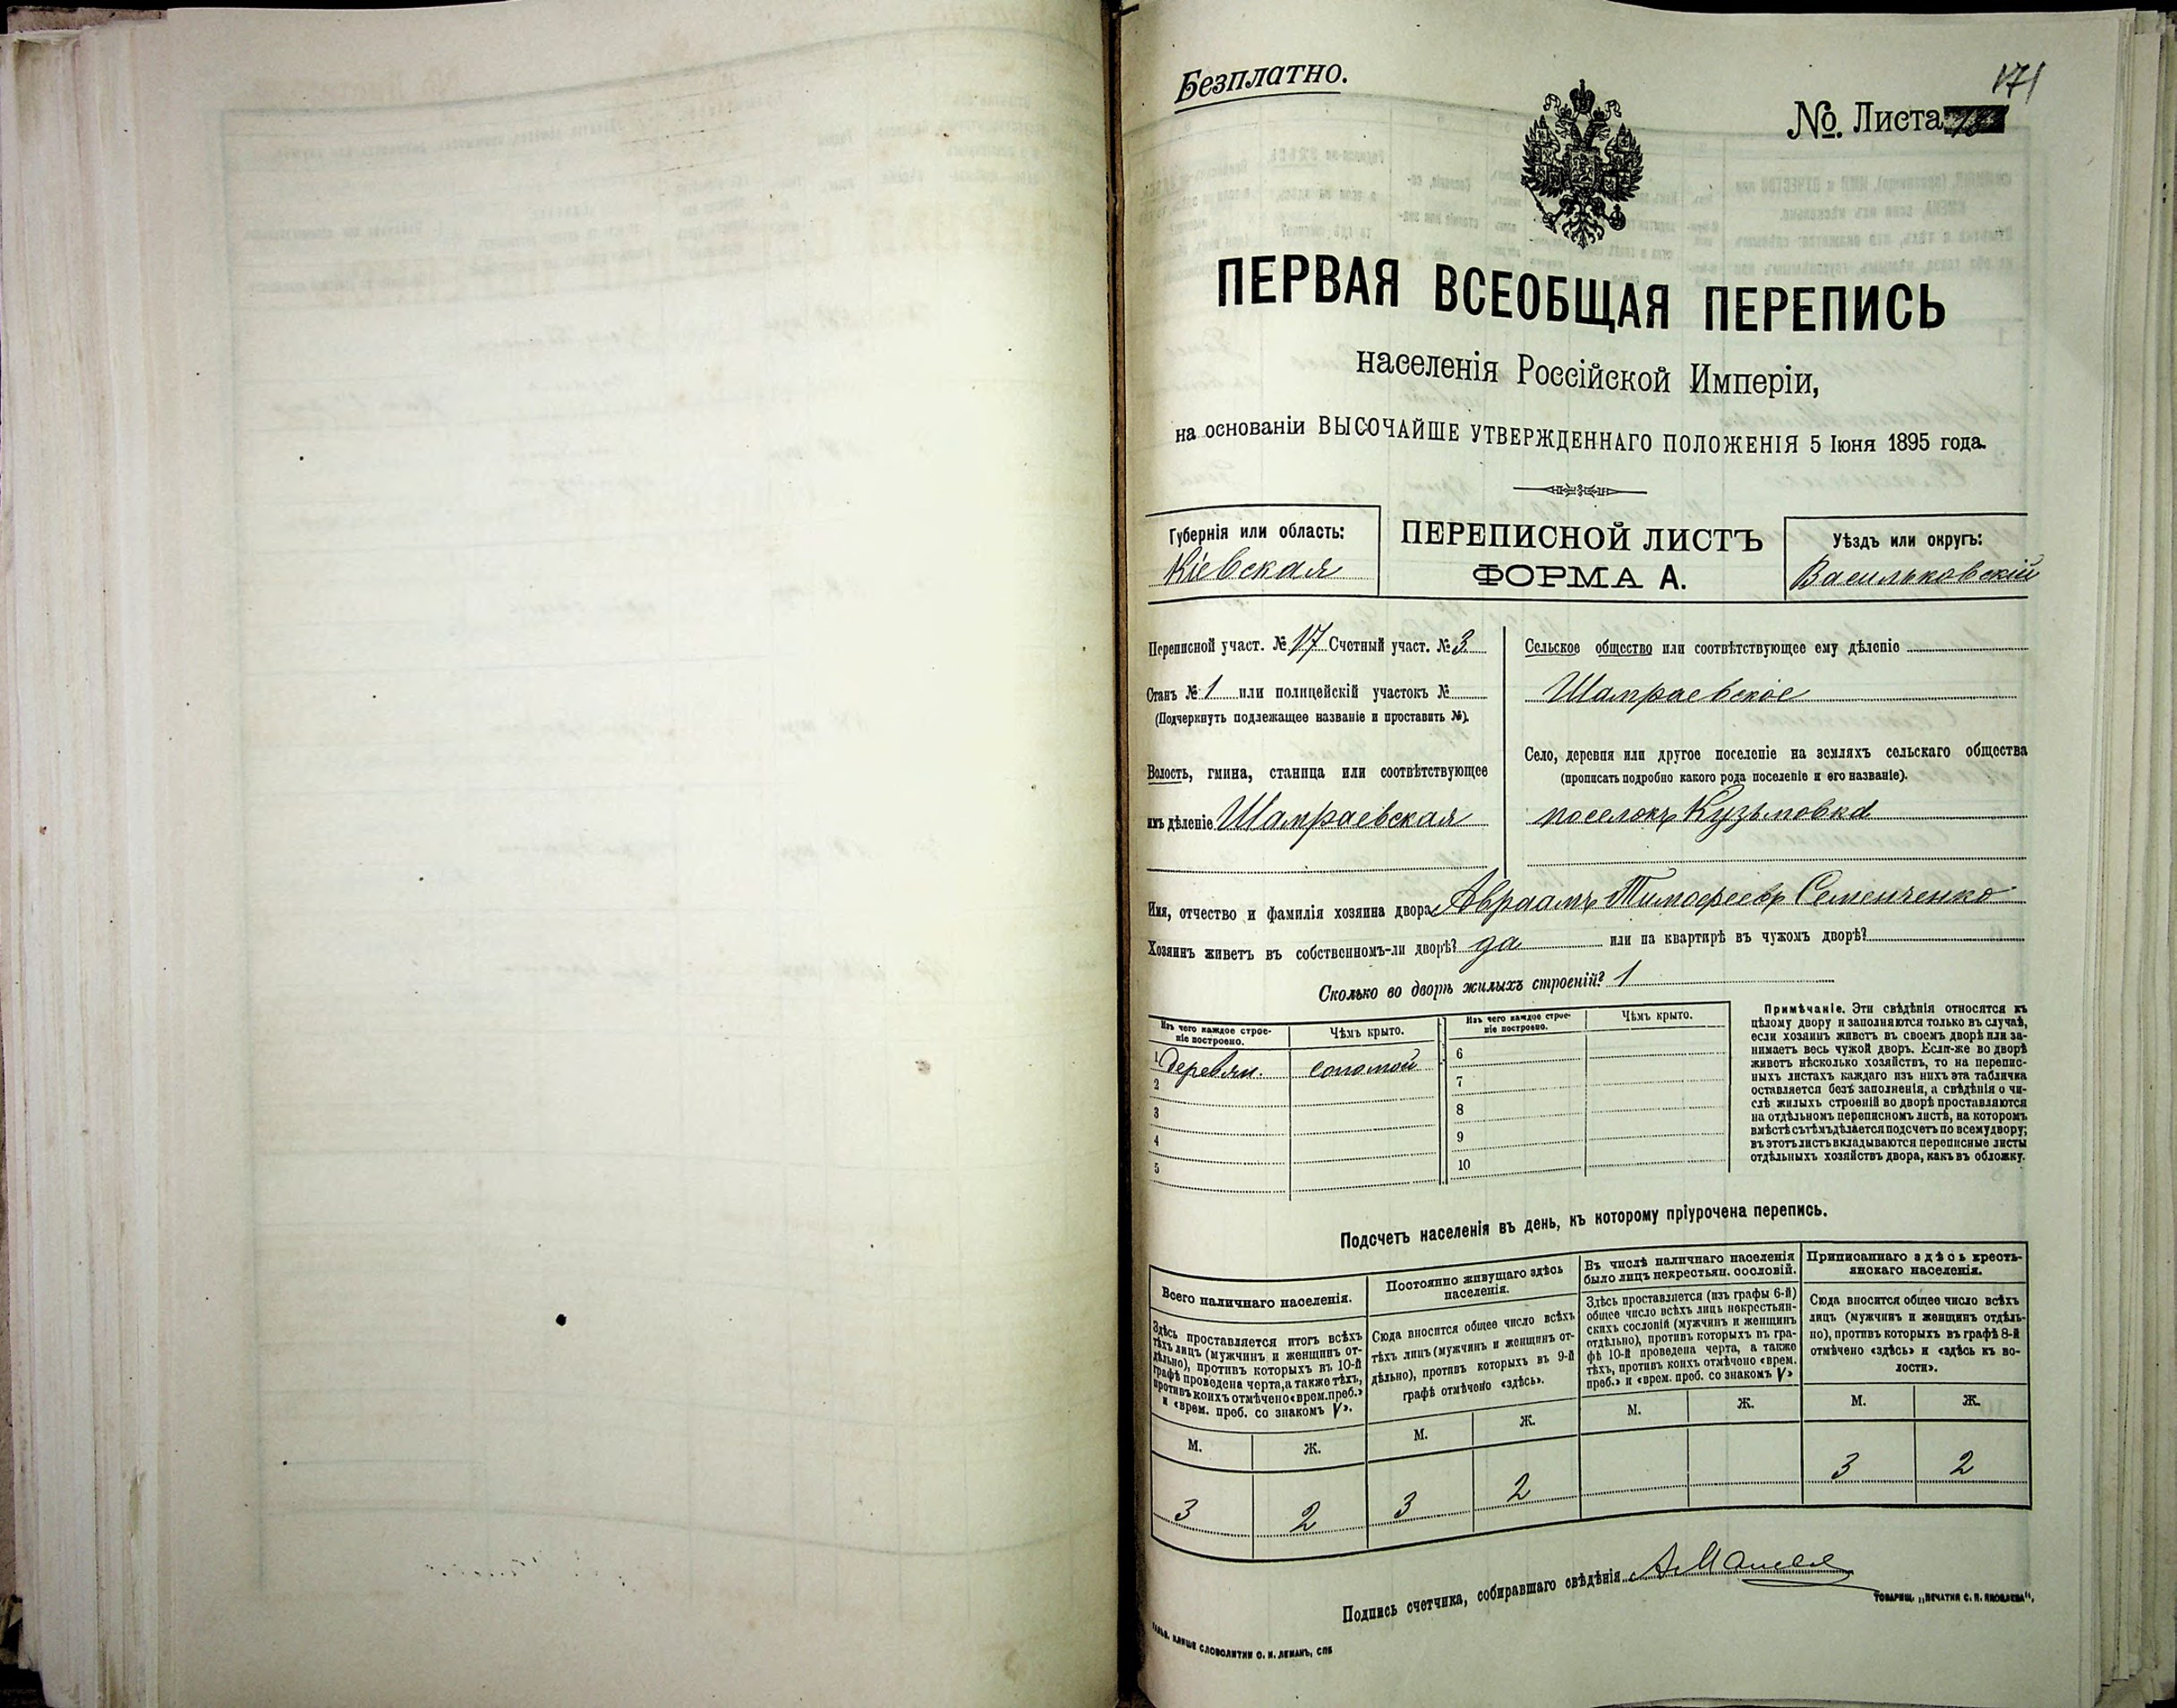 Безплатно.
171
№. Листа
ПЕРВАЯ ВСЕОБЩАЯ ПЕРЕПИСЬ
населенія Россійской Имперіи,
на основаніи ВЫСОЧАЙШЕ УТВЕРЖДЕННАГО ПОЛОЖЕНІЯ 5 Іюня 1895 года.
Губернія или область:
Кіевская
ПЕРЕПИСНОЙ ЛИСТЪ
ФОРМА А.
Уѣздъ или округъ:
Васильковскій
Переписной участ. № 17 Счетный участ. № 3
Станъ № 1 или полицейскій участокъ №
(Подчеркнуть подлежащее названіе и проставить №).
Волость, гмина, станица или соотвѣтствующее
имъ дѣленіе Шамраевская
Сельское общество или соотвѣтствующее ему дѣленіе
Шамраевское
Село, деревня или другое поселеніе на земляхъ сельскаго общества
(прописать подробно какого рода поселеніе и его названіе).
поселокъ Кузьмовка
Имя, отчество и фамилія хозяина двора Авраамъ Тимофеевъ Семенченко
Хозяинъ живетъ въ собственномъ-ли дворѣ? да или на квартирѣ въ чужомъ дворѣ?
Сколько во дворѣ жилыхъ строеній? 1
Изъ чего каждое строе-
ніе построено.
Чѣмъ крыто.
1 деревян. соломой
2
3
4
5
Изъ чего каждое строе-
ніе построено.
Чѣмъ крыто.
6
7
8
9
10
Примѣчаніе. Эти свѣдѣнія относятся къ
цѣлому двору и заполняются только въ случаѣ,
если хозяинъ живетъ въ своемъ дворѣ или за-
нимаетъ весь чужой дворъ. Если-же во дворѣ
живетъ нѣсколько хозяйствъ, то на перепис-
ныхъ листахъ каждаго изъ нихъ эта табличка
оставляется безъ заполненія, а свѣдѣнія о чи-
слѣ жилыхъ строеній во дворѣ проставляются
на отдѣльномъ переписномъ листѣ, на которомъ
вмѣстѣ съ тѣмъ дѣлается подсчетъ по всему двору;
въ этотъ листъ вкладываются переписные листы
отдѣльныхъ хозяйствъ двора, какъ въ обложку.
Подсчетъ населенія въ день, къ которому пріурочена перепись.
Всего наличнаго населенія.
Здѣсь проставляется итогъ всѣхъ
тѣхъ лицъ (мужчинъ и женщинъ от-
дѣльно), противъ которыхъ въ 10-й
графѣ проведена черта, а также тѣхъ,
противъ коихъ отмѣчено «врем. преб.»
и «врем. преб. со знакомъ V».
М. Ж.
3 2
Постоянно живущаго здѣсь
населенія.
Сюда вносится общее число всѣхъ
тѣхъ лицъ (мужчинъ и женщинъ от-
дѣльно), противъ которыхъ въ 9-й
графѣ отмѣчено «здѣсь».
М. Ж.
3 2
Въ числѣ наличнаго населенія
было лицъ некрестьян. сословій.
Здѣсь проставляется (изъ графы 6-й)
общее число всѣхъ лицъ некрестьян-
скихъ сословій (мужчинъ и женщинъ
отдѣльно), противъ которыхъ въ гра-
фѣ 10-й проведена черта, а также
тѣхъ, противъ коихъ отмѣчено «врем.
преб.» и «врем. преб. со знакомъ V»
М. Ж.
Приписаннаго здѣсь кресть-
янскаго населенія.
Сюда вносится общее число всѣхъ
лицъ (мужчинъ и женщинъ отдѣль-
но), противъ которыхъ въ графѣ 8-й
отмѣчено «здѣсь» и «здѣсь къ во-
лости».
М. Ж.
3 2
Подпись счетчика, собиравшаго свѣдѣнія
ТОВАРИЩ. „ПЕЧАТНЯ С. П. ЯКОВЛЕВА“,
КЛИШЕ СЛОВОЛИТНИ О. И. ЛЕМАНЪ, СПБ